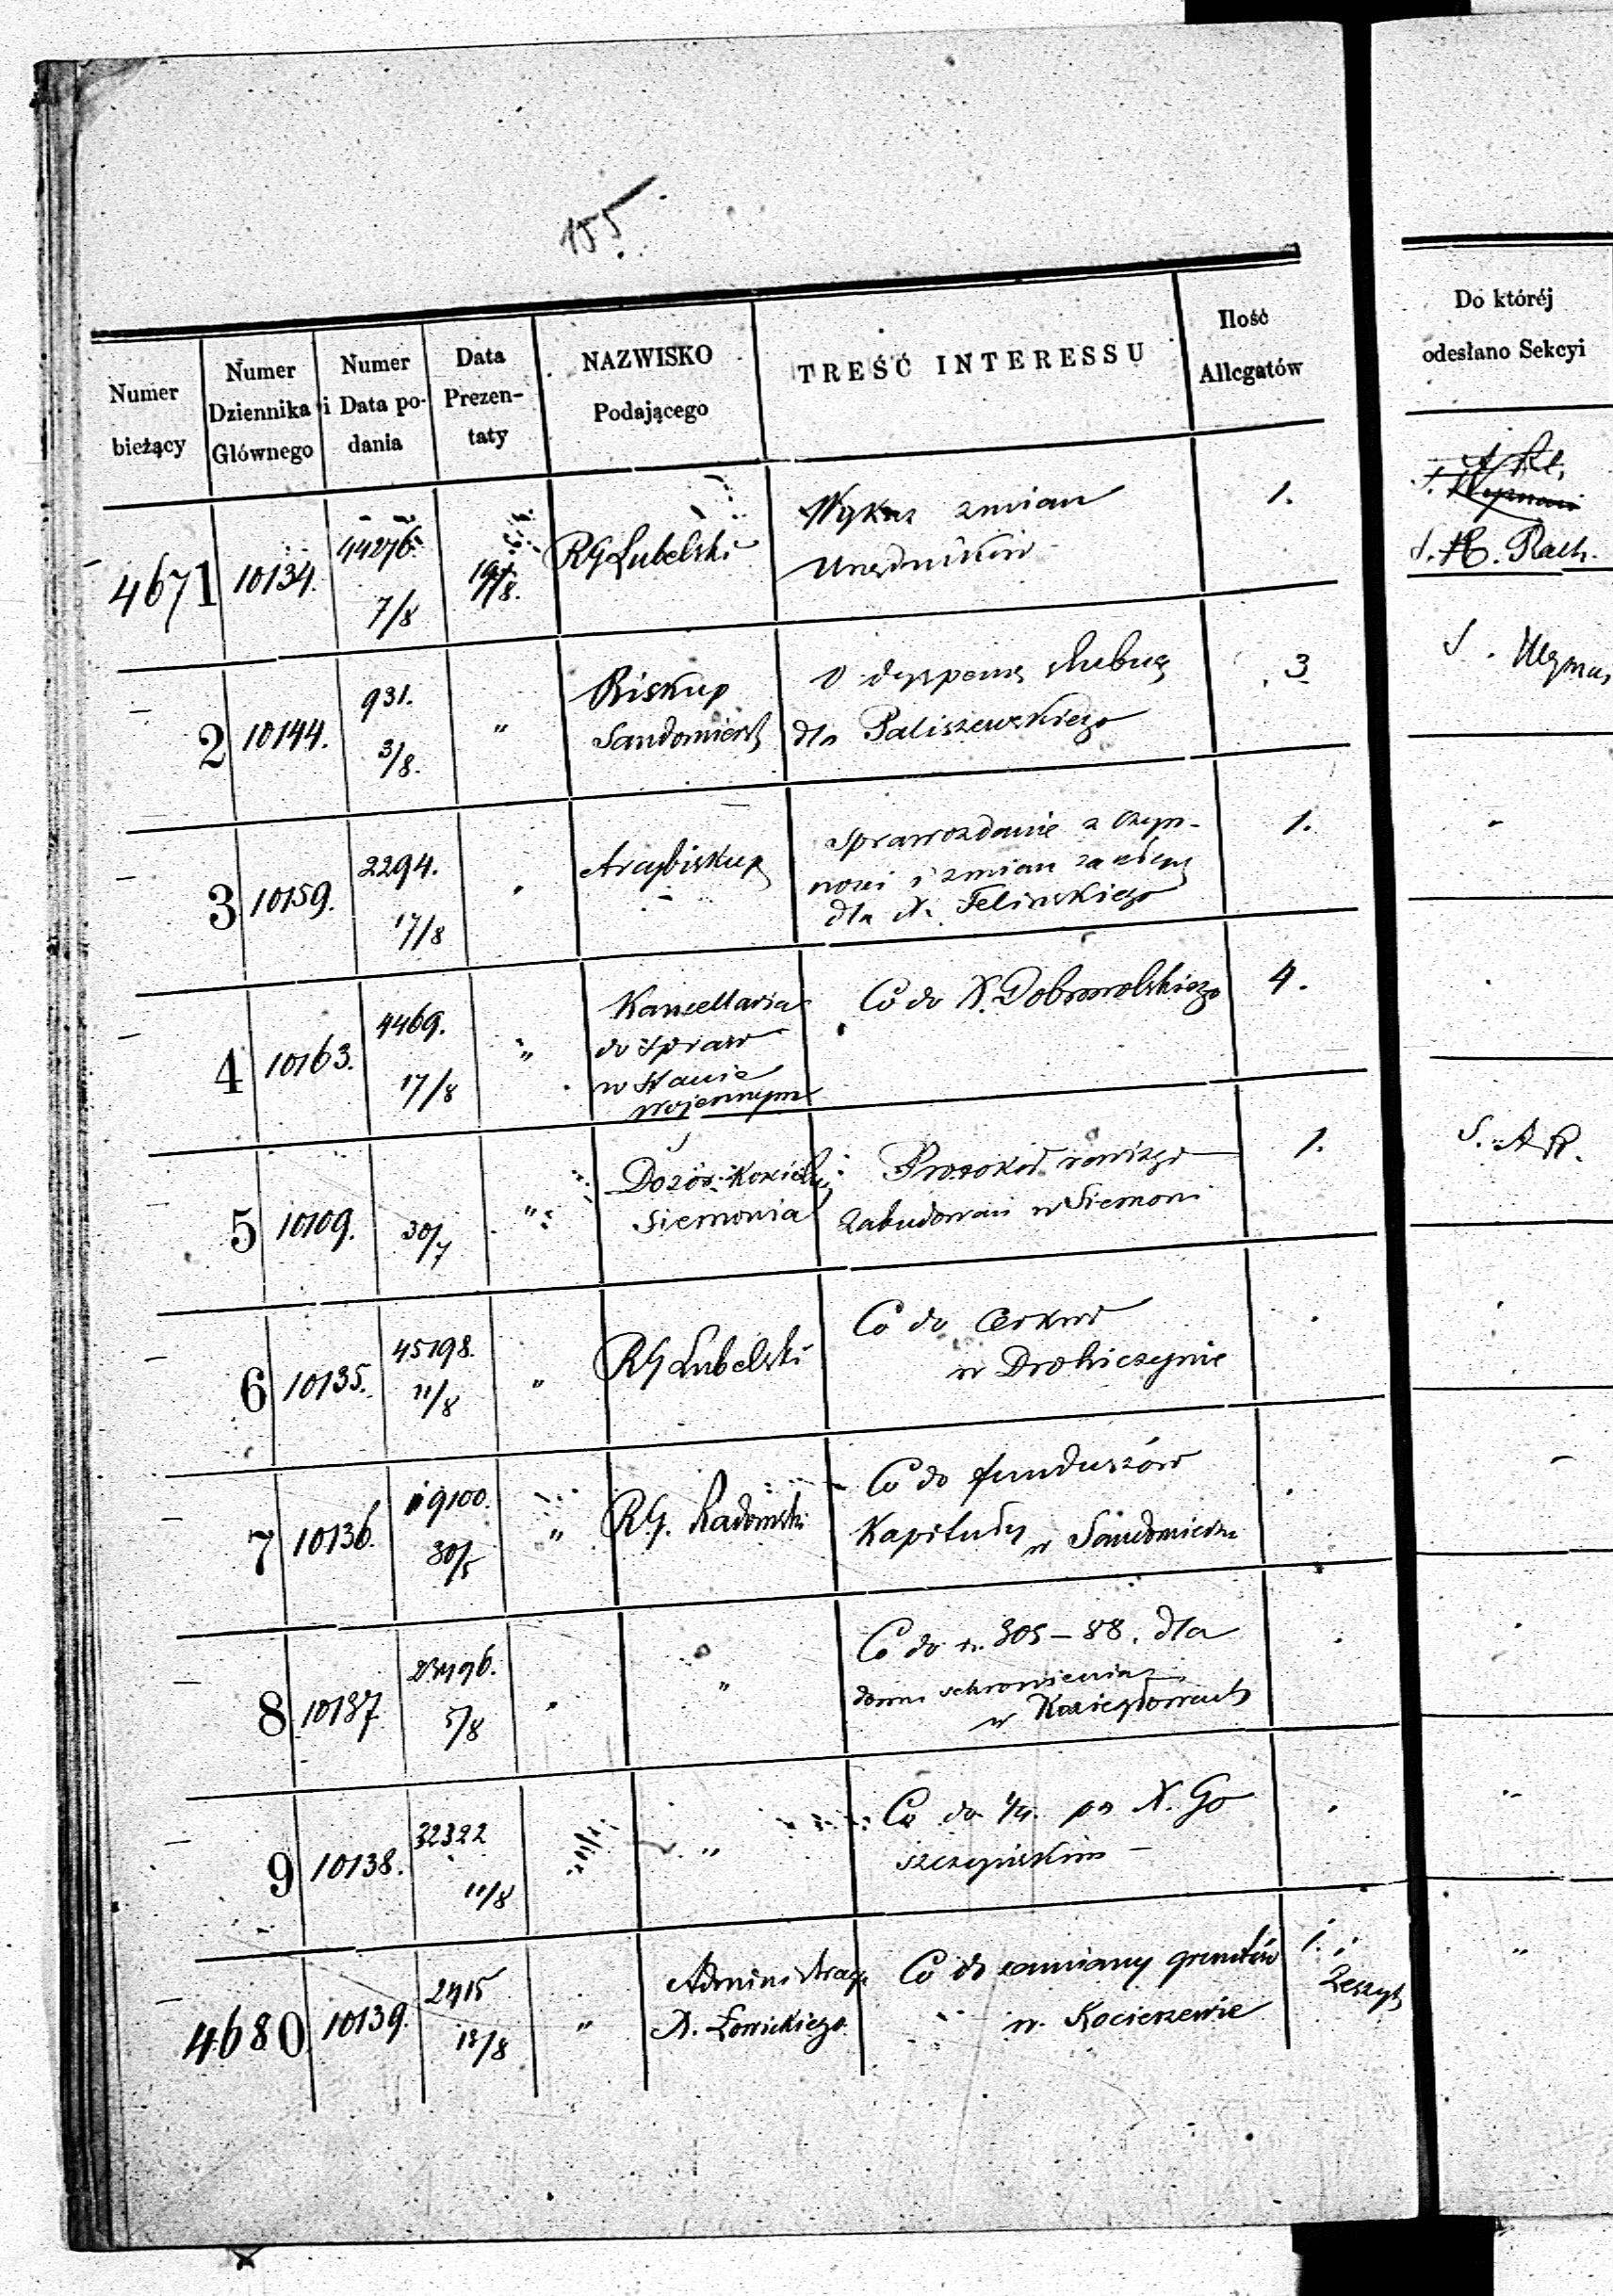 155.
Numer bieżący
Numer Dziennika Głównego
Numer i Data podania
Data Prezentaty
NAZWISKO Podającego
TREŚĆ INTERESSU
Ilość Allegatów
Do któréj odesłano Sekcyi
4671 10134. 44276. 7/8 RG Lubelski Wykaz zmian 1.
Urzędników
S. Rach.
2 10144. 931. 3/8. " Biskup O dyspensę ślubną 3
Sandomiersk dla Paliszewskiego
S. Wyznań
3 10159. 2294. 17/8 Arcybiskup Sprawozdanie z czyn-
ności i zmian
dla X. Felińskiego
1.
4 10163. 4469. 17/8 " Kancellaria Co do X. Dobrowolskiego 4.
do Spraw
w Stanie
Wojennym
5 10109. 30/7 " Dozór Kościelny Protokół rewizyi 1.
Siemonia zabudowań w Siemoni
S. A R.
6 10135. 45198. 11/8 " RG Lubelski Co do Cerkwi
w Drohiczynie
7 10136. 19100. 30/5 " RG. Radomski Co do funduszów
Kapituły w Sandomierzu
8 10137 5/8 " Co do r. 305-88. dla
domu schronienia
w Koziegłowach
9 10138. 32322 11/8 " Co do 1/4. po X. Go
szczyńskim
4680 10139. 2415 18/8 " Administracya Co do zamiany gruntów 1.
X. Łowickiego w Kocierzewie
Zeszyt
"